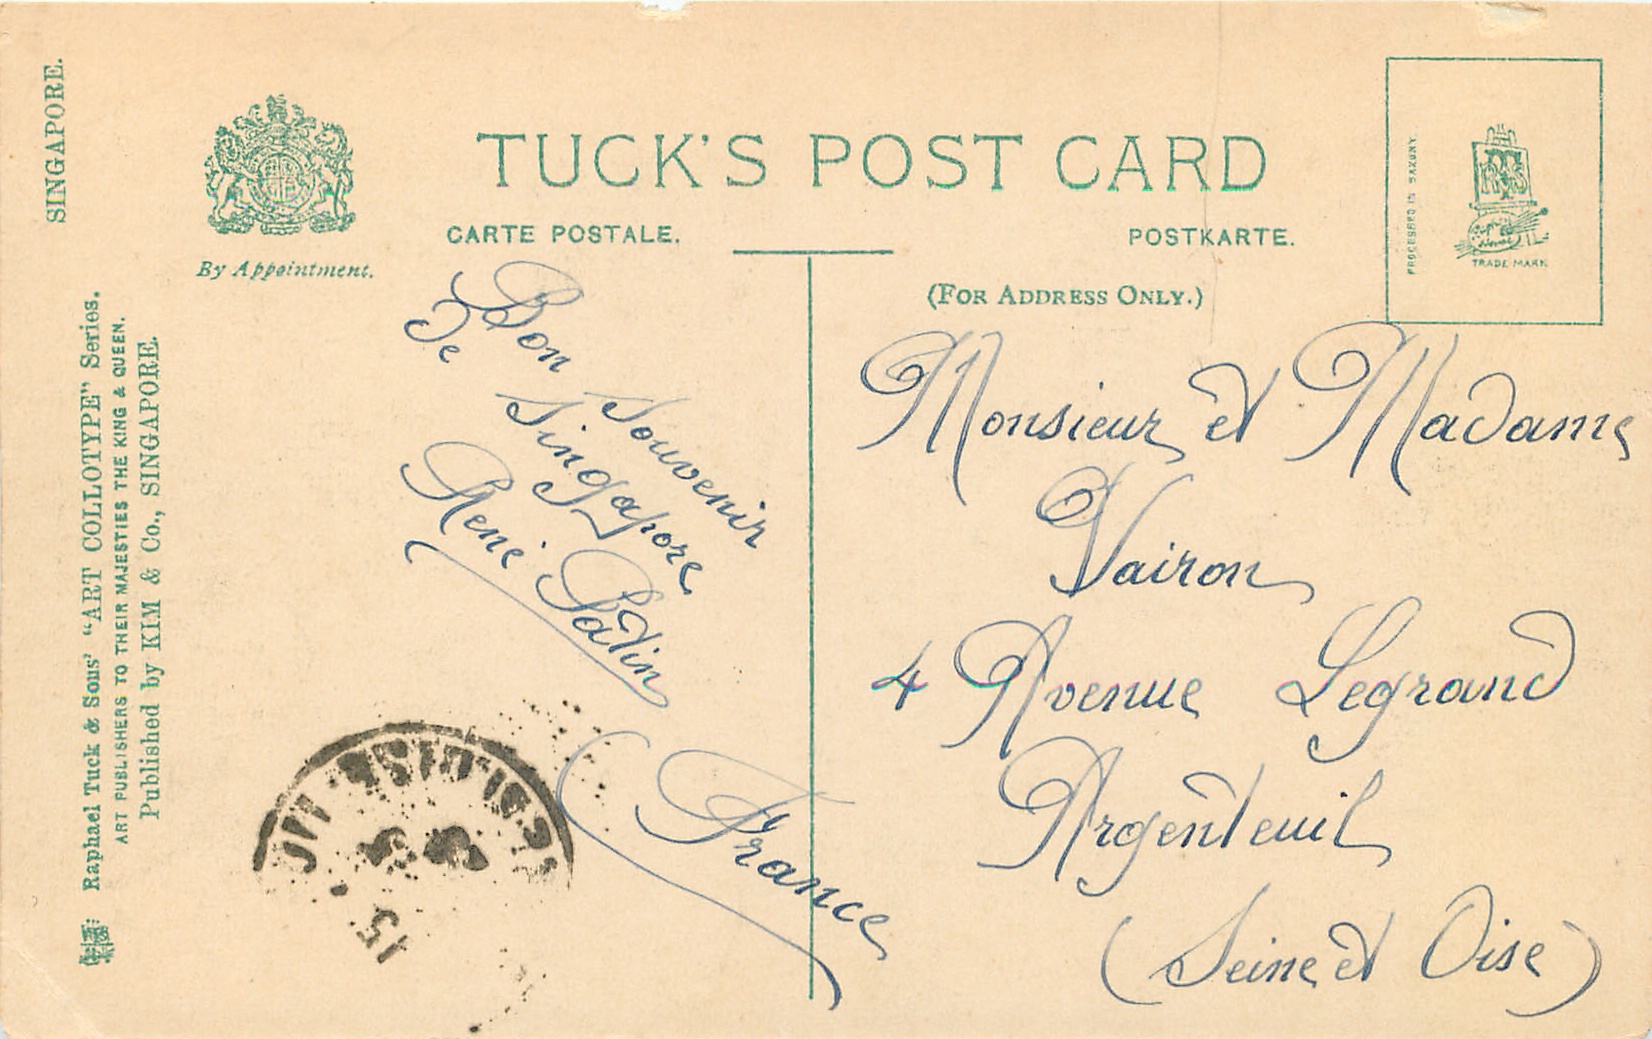 SINGAPORE.
Raphael Tuck & Sons' "ART COLLOTYPE" Series.
ART PUBLISHERS TO THEIR MAJESTIES THE KING & QUEEN.
Published by KIM & Co., SINGAPORE.
By Appointment.
TUCK'S POST CARD
CARTE POSTALE.
POSTKARTE.
(FOR ADDRESS ONLY.)
PROCESSED IN SAXONY.
TRADE MARK
Bon Souvenir
De Singapore
René Patin
Monsieur et Madame
Vairon
4 Avenue Legrand
Argenteuil
(Seine et Oise)
(France
15